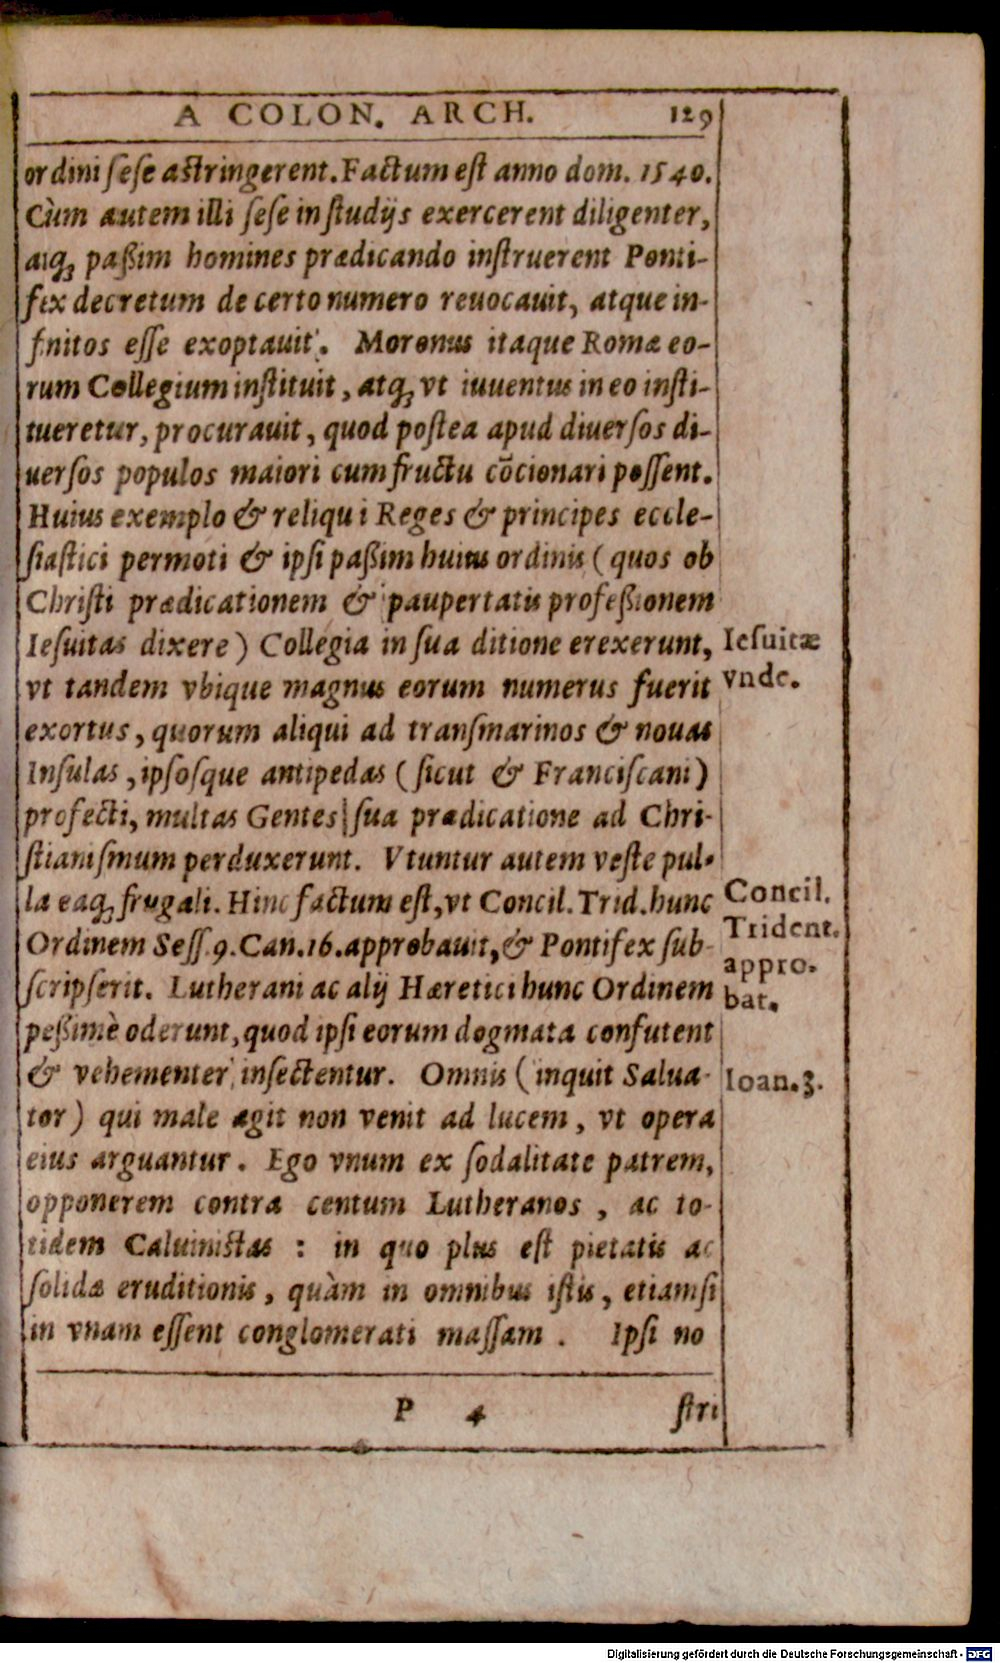 A COLON. ARCH. 129
ordini ſeſe aſtringerent. Factum eſt anno dom. 1540.
Cùm autem illi ſeſe in ſtudijs exercerent diligenter,
atq́ꝫ paßim homines prædicando inſtruerent Ponti-
fex decretum de certo numero reuocauit, atque in-
finitos eſſe exoptauit. Moronus itaque Romæ eo-
rum Collegium inſtituit, atqꝫ vt iuuentus in eo inſti-
tueretur, procurauit, quod poſtea apud diuerſos di-
uerſos populos maiori cum fructu cōcionari poſſent.
Huius exemplo & reliqui Reges & principes eccle-
ſiaſtici permoti & ipſi paßim huius ordinis (quos ob
Chriſti prædicationem & paupertatis profeßionem
Ieſuitas dixere) Collegia in ſua ditione erexerunt,
vt tandem vbique magnus eorum numerus fuerit
exortus, quorum aliqui ad tranſmarinos & nouas
Inſulas, ipſosque antipedas (ſicut & Franciſcani)
profecti, multas Gentes ſua prædicatione ad Chri-
ſtianiſmum perduxerunt. Vtuntur autem veſte pul-
la eaqꝫ frugali. Hinc factum eſt, vt Concil. Trid. hunc
Ordinem Seſſ. 9. Can. 16. approbauit, & Pontifex ſub-
ſcripſerit. Lutherani ac alij Hæretici hunc Ordinem
peßimè oderunt, quod ipſi eorum dogmata confutent
& vehementer inſectentur. Omnis (inquit Salua-
tor) qui male agit non venit ad lucem, vt opera
eius arguantur. Ego vnum ex ſodalitate patrem,
opponerem contra centum Lutheranos, ac to-
tidem Caluiniſtas: in quo plus eſt pietatis ac
ſolidæ eruditionis, quàm in omnibus iſtis, etiamſi
in vnam eſſent conglomerati maſſam. Ipſi no
P 4 ſtri
Ieſuitæ
vnde.
Concil.
Trident.
appro.
bat.
Ioan. 3.
Digitalisierung gefördert durch die Deutsche Forschungsgemeinschaft - DFG